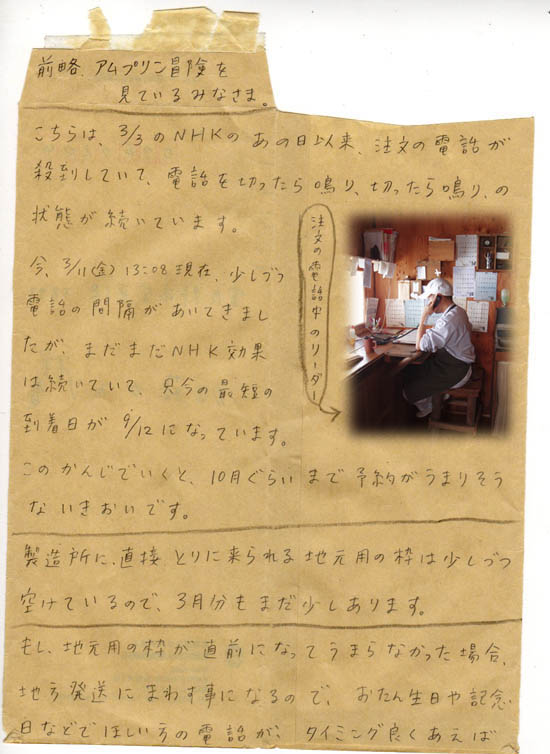 前略、アムプリン冒険を
見ているみなさま。
こちらは、3/3のNHKの あの日以来、注文の電話が
殺到していて、電話を切ったら鳴り、切ったら鳴り、の
状態が続いています。
注文の電話中のリーダー
今、3/11(金) 13:08 現在、少しづつ
電話の間隔があいてきまし
たが、まだまだNHK効果
は続いていて、只今の最短の
到着日が 9/12 になっています。
このかんじでいくと、10月ぐらいまで予約がうまりそう
ないきおいです。
製造所に、直接 とりに来られる地元用の枠は少しづつ
空けているので、3月分もまだ少しあります。
もし、地元用の枠が直前になってうまらなかった場合、
地方発送にまわす事になるので、おたん生日や記念
日などでほしい方の電話が、タイミング良くあえば